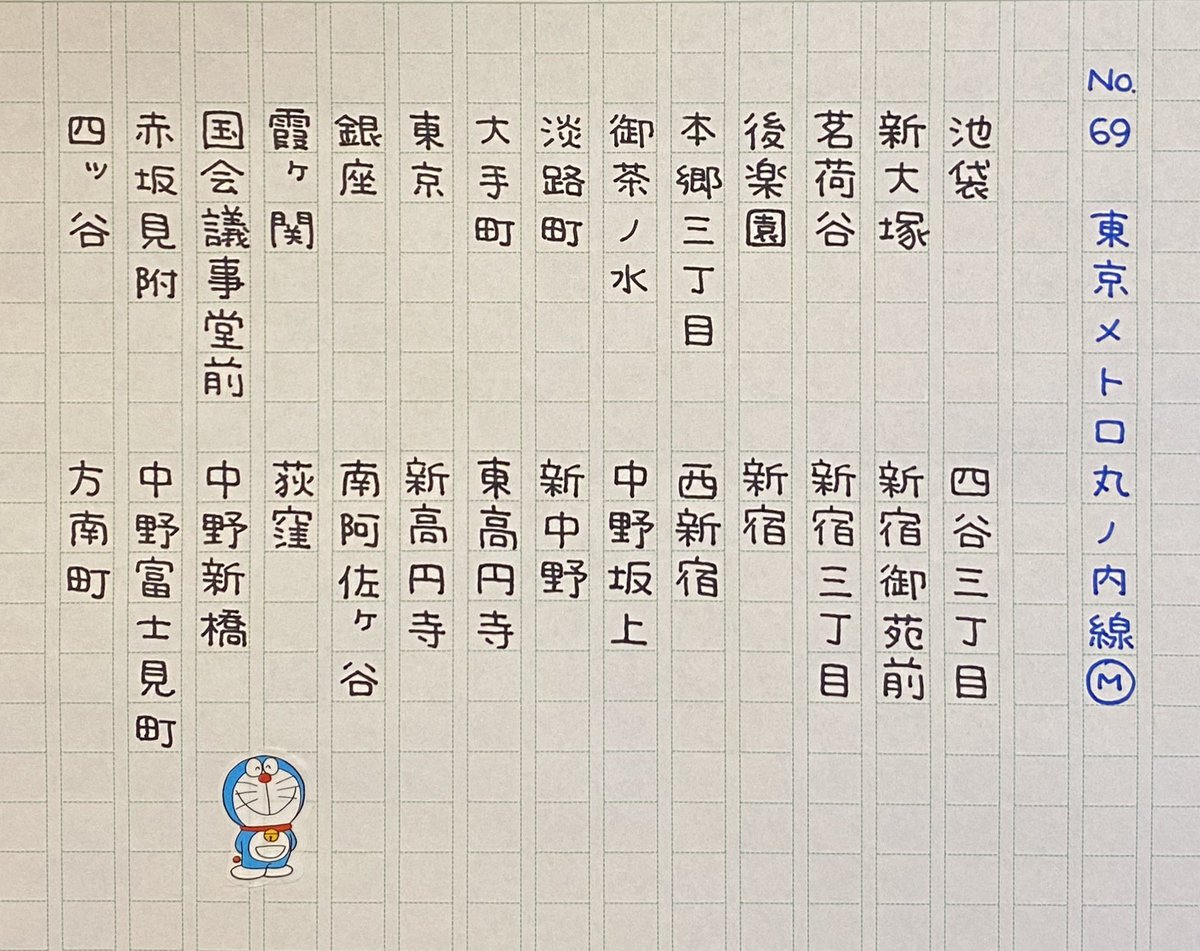 No.69 東京メトロ丸ノ内線Ⓜ
池袋
新大塚
茗荷谷
後楽園
本郷三丁目
御茶ノ水
淡路町
大手町
東京
銀座
霞ヶ関
国会議事堂前
赤坂見附
四ッ谷
四谷三丁目
新宿御苑前
新宿三丁目
新宿
西新宿
中野坂上
新中野
東高円寺
新高円寺
南阿佐ヶ谷
荻窪
中野新橋
中野富士見町
方南町